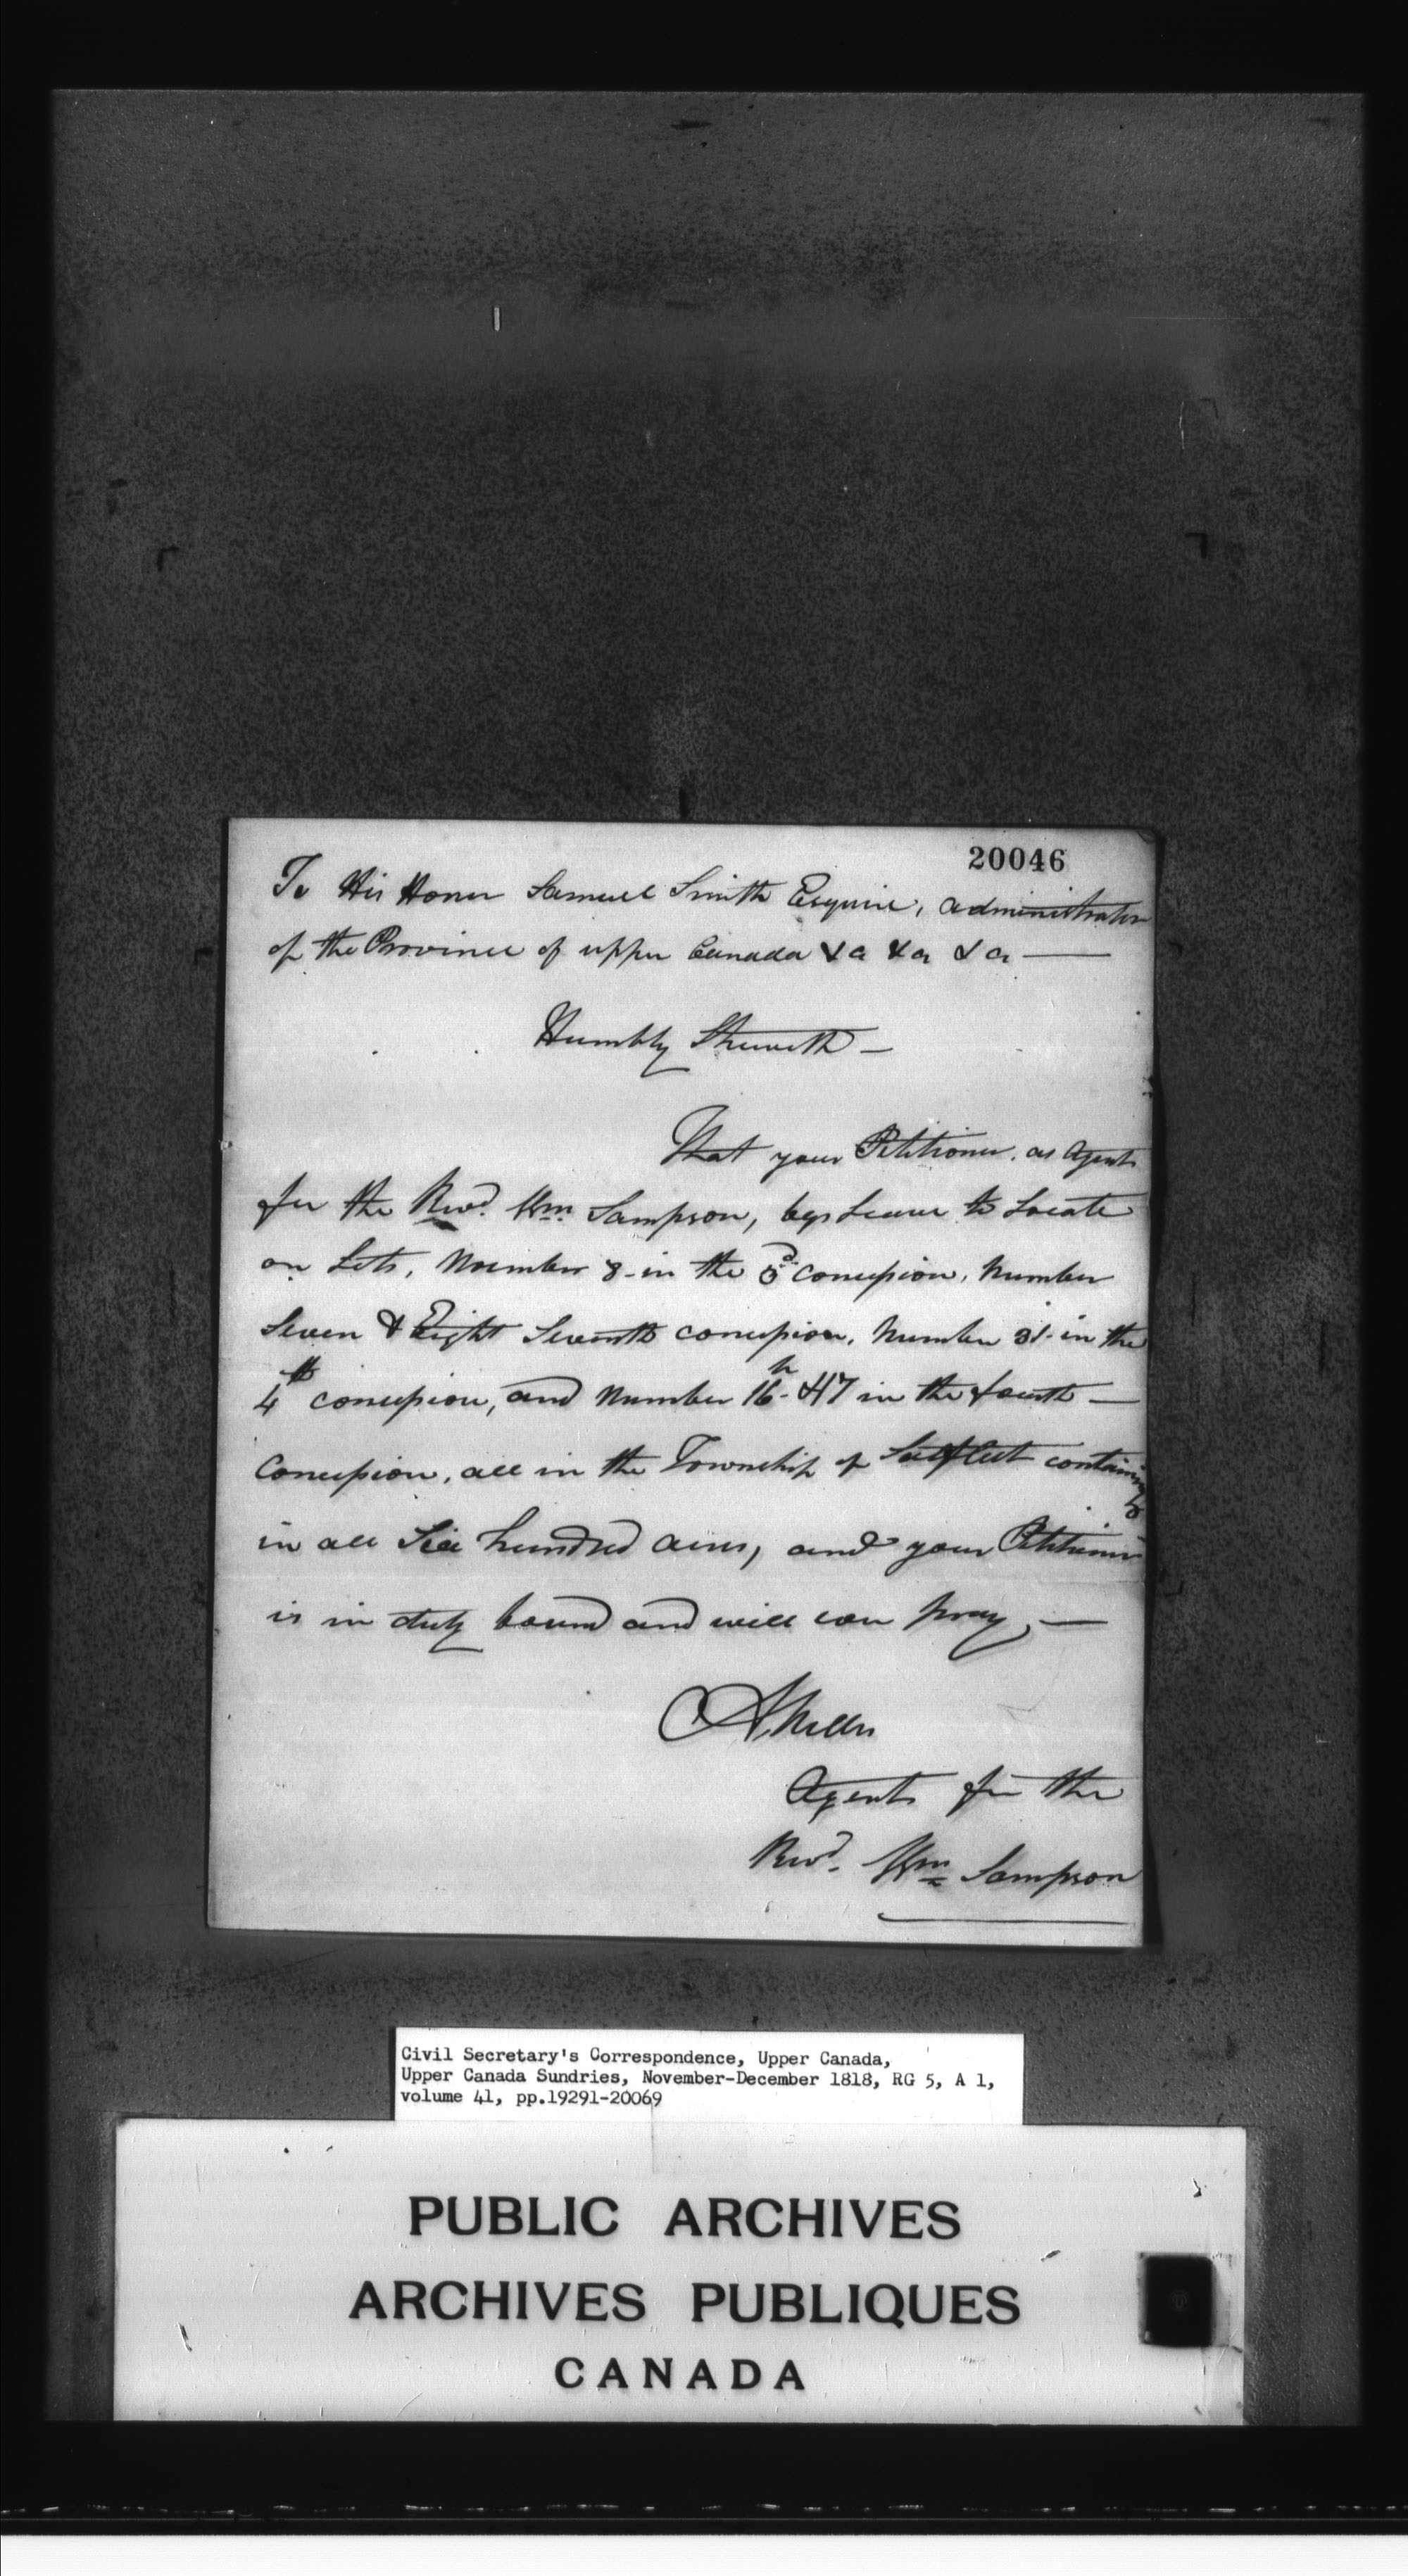 20046
To His Honor Samuel Smith Esquire, administrator
of the Province of upper Canada &a &a &a
Humbly Sheweth
That your Petitioner, as Agent
for the Revd. Wm. Sampson, begs Leave to Locate
on Lots, Number 8 in the concession, Number
Seven & Eight Seventh concession, Number 31 in the
4th concession, and Number 16 & 17 in the fourth
Concession, all in the Township of Saltfleet containing
in all Six hundred acres, and your Petitioner
is in duty bound and will ever pray,
Agent for the
Revd. Wm Sampson
Civil Secretary's Correspondence, Upper Canada,
Upper Canada Sundries, November-December 1818, RG 5, A 1,
volume 41, pp.19291-20069
PUBLIC ARCHIVES
ARCHIVES PUBLIQUES
CANADA